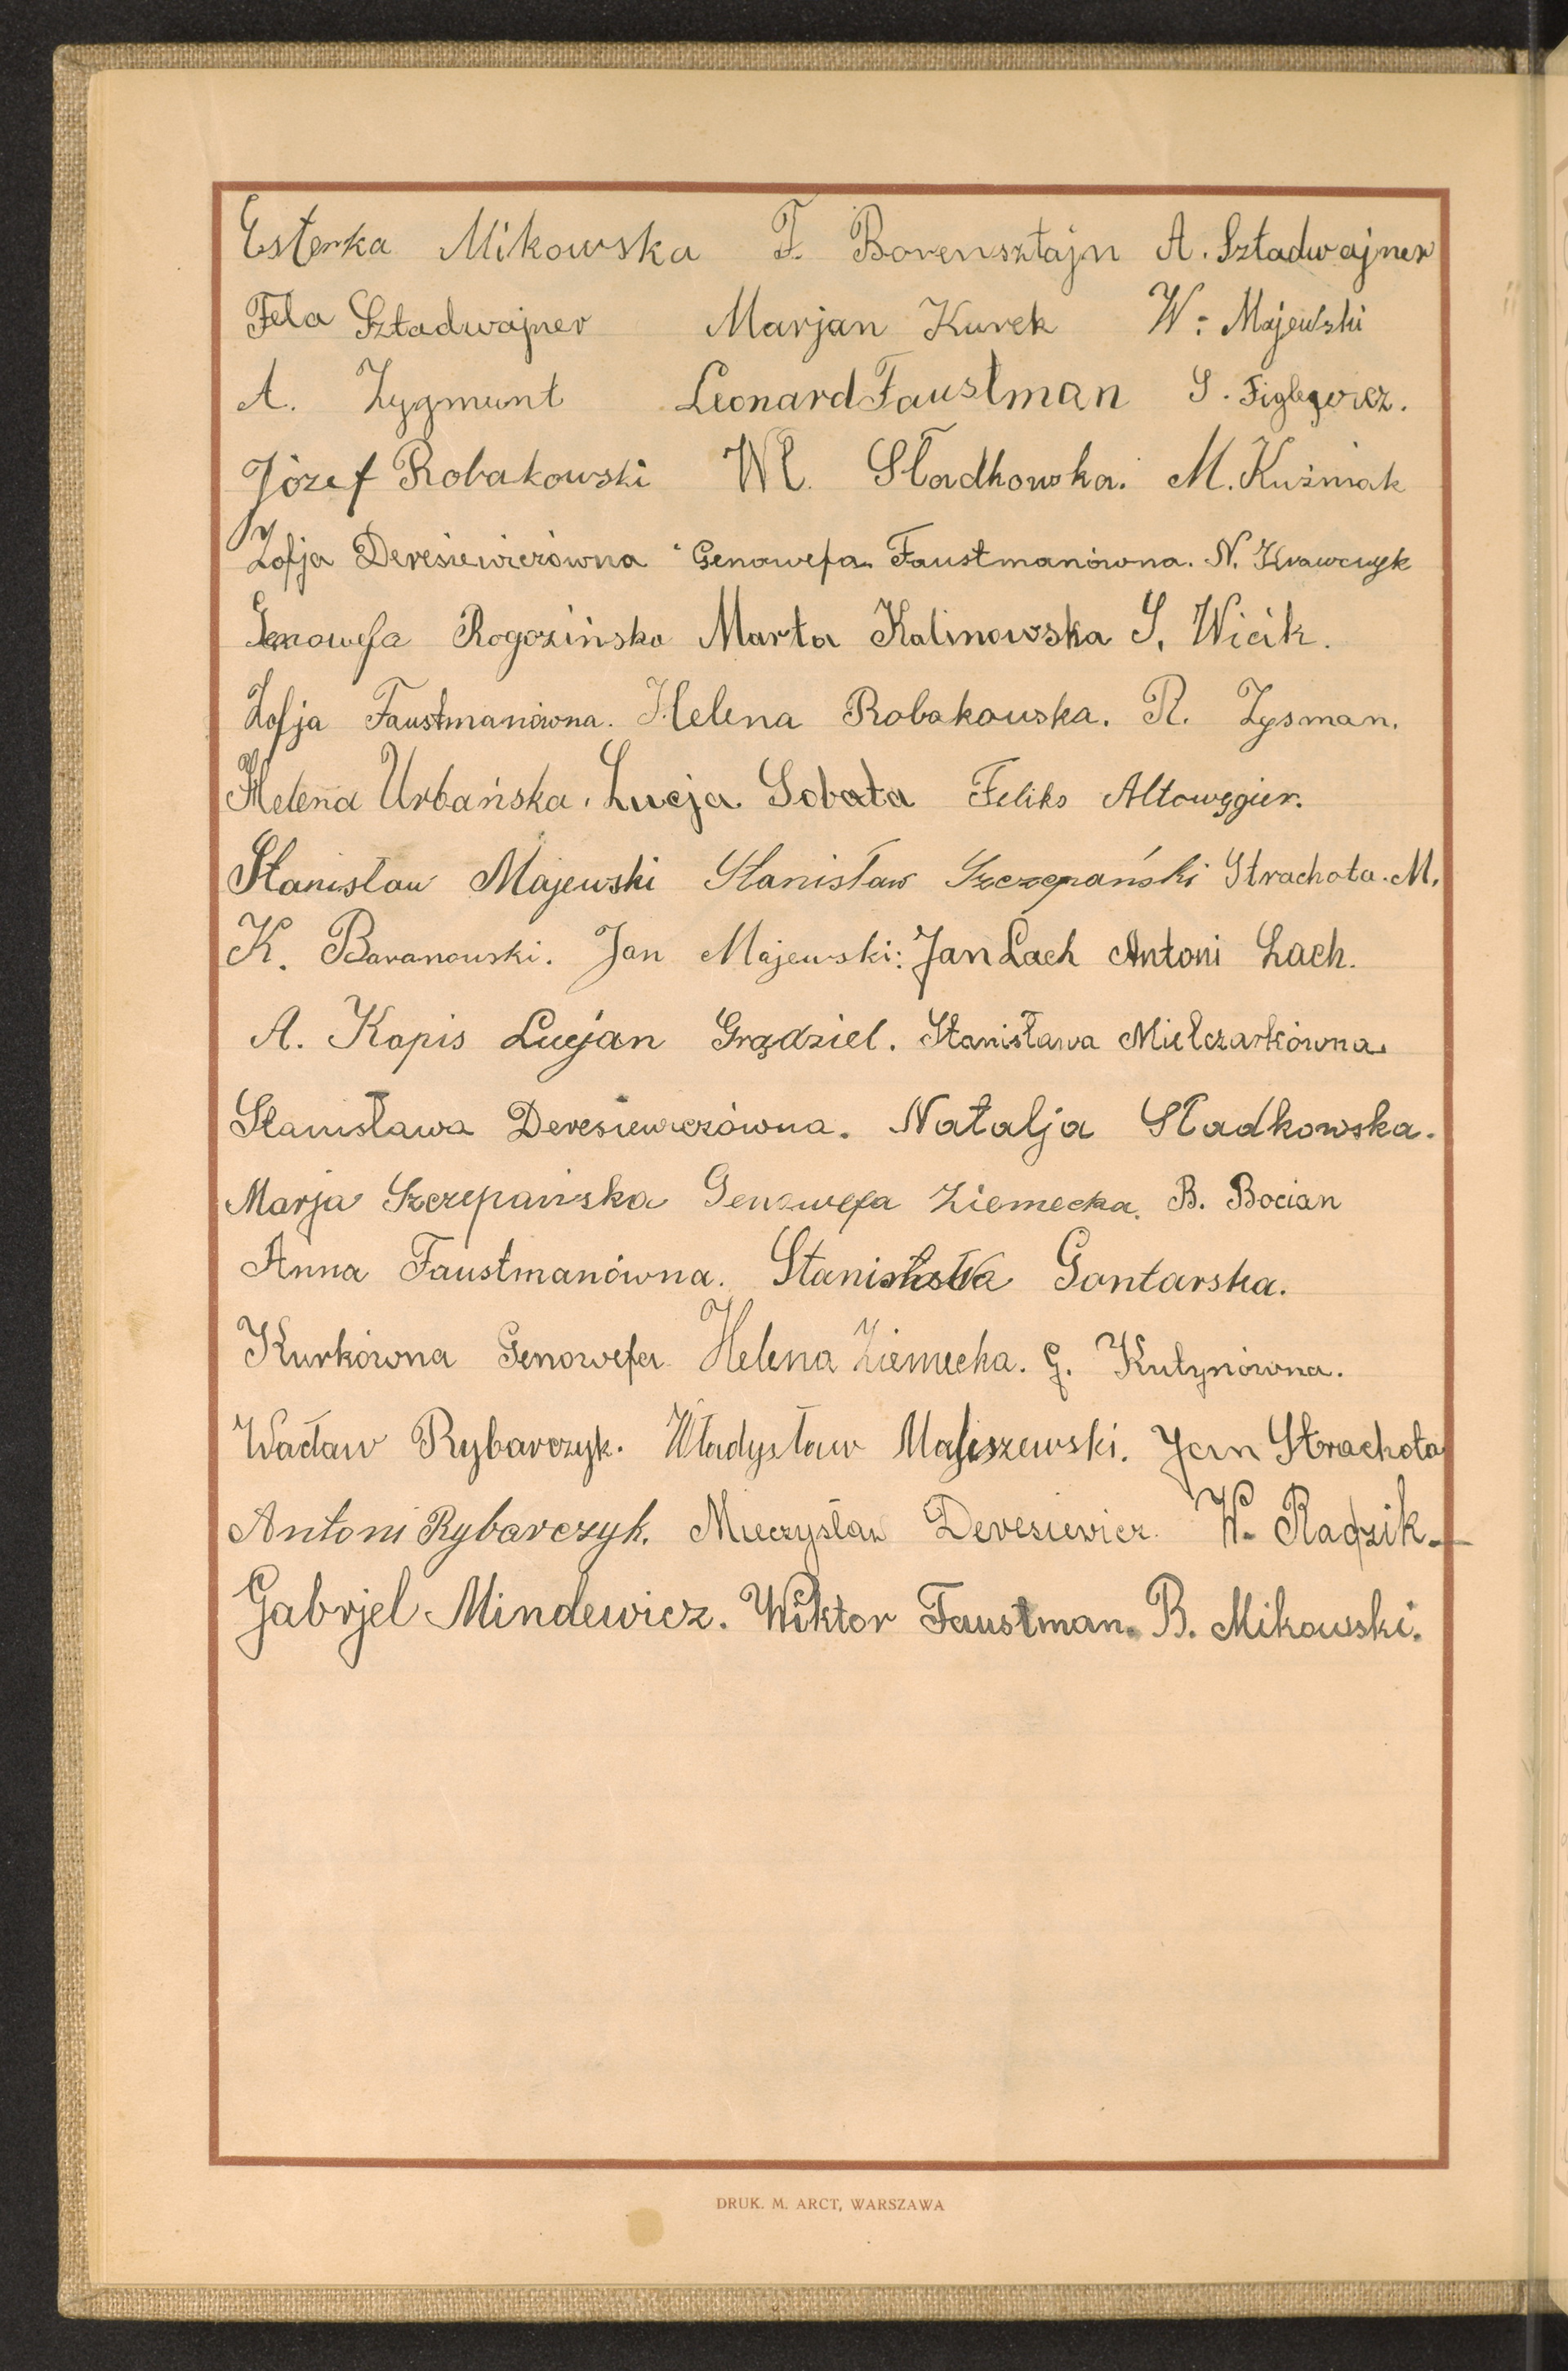 Esterka Mikowska F. Borensztajn A. Sztadwajner
Fela Sztadwajner Marjan Kurek W. Majewski
A. Zygmunt Leonard Faustman S. Figlewicz.
Józef Robakowski Wł. Sładkowska. M. Kuźniak
Zofja Deresiewiczówna Genowefa Faustmanówna. N. Krawczyk
Genowefa Rogozińska Marta Kalinowska S. Wicik.
Zofja Faustmanówna. Helena Robakowska. R. Zysman.
Helena Urbańska. Łucja Sobata Feliks Altowęgier.
Stanisław Majewski Stanisław Szczepański Strachota. M.
K. Baranowski. Jan Majewski: Jan Lach Antoni Lach.
A. Kapis Lucjan Grądziel. Stanisława Mielczarkówna.
Stanisława Deresiewiczówna. Natalja Sładkowska.
Marja Szczepańska Genowefa Ziemecka. B. Bocian
Anna Faustmanówna. Stanisława Gontarska.
Kurkówna Genowefa Helena Ziemecka. G. Kutynówna.
Wacław Rybarczyk. Władysław Maliszewski. Jan Strachota
Antoni Rybarczyk. Mieczysław Deresiewicz. W. Radzik.
Gabrjel Mindewicz. Wiktor Faustman. B. Mikowski.
DRUK. M. ARCT, WARSZAWA